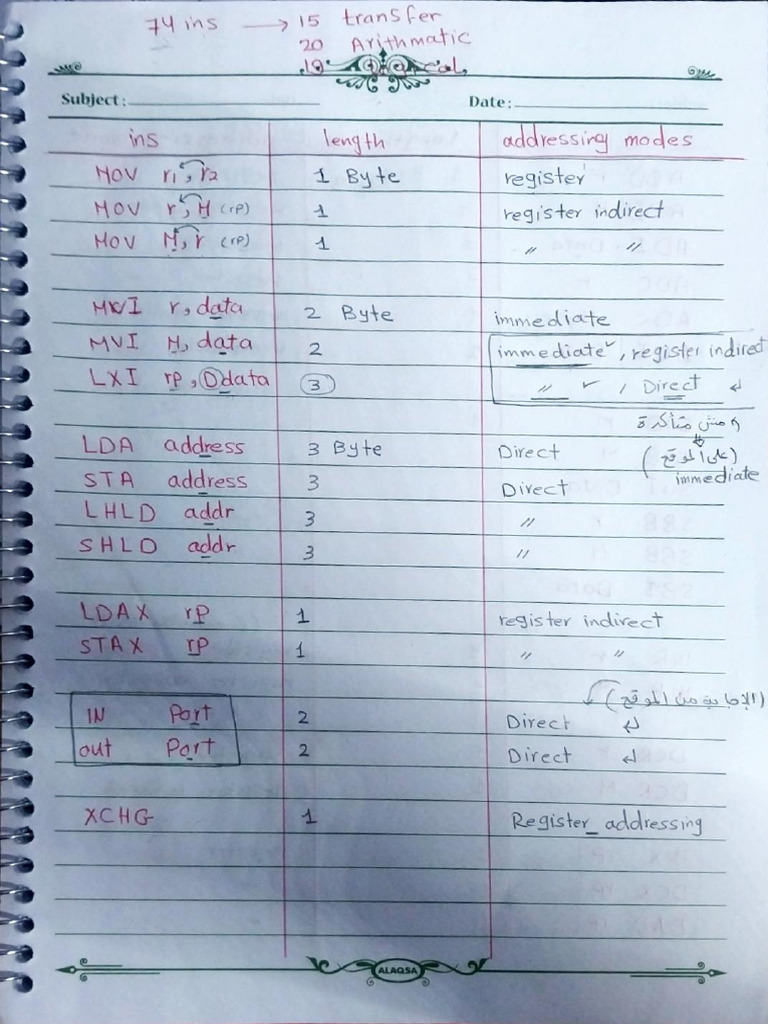 74 ins → 15 transfer
20 Arithmatic
19
Subject: Date:
ins length addressing modes
MOV r1, r2 1 Byte register
MOV r, M (rp) 1 register indirect
MOV M, r (rp) 1 " "
MVI r, data 2 Byte immediate
MVI M, data 2 immediate ✓, register indirect
LXI rp, Ddata 3 " ✓, Direct ↲
ومش متأكدة
LDA address 3 Byte Direct (على الموقع)
immediate
STA address 3 Direct
LHLD addr 3 "
SHLD addr 3 "
LDAX rp 1 register indirect
STAX rp 1 " "
(الإجابة من الموقع)
IN Port 2 Direct ↲
out Port 2 Direct ↲
XCHG 1 Register_addressing
ALAQSA